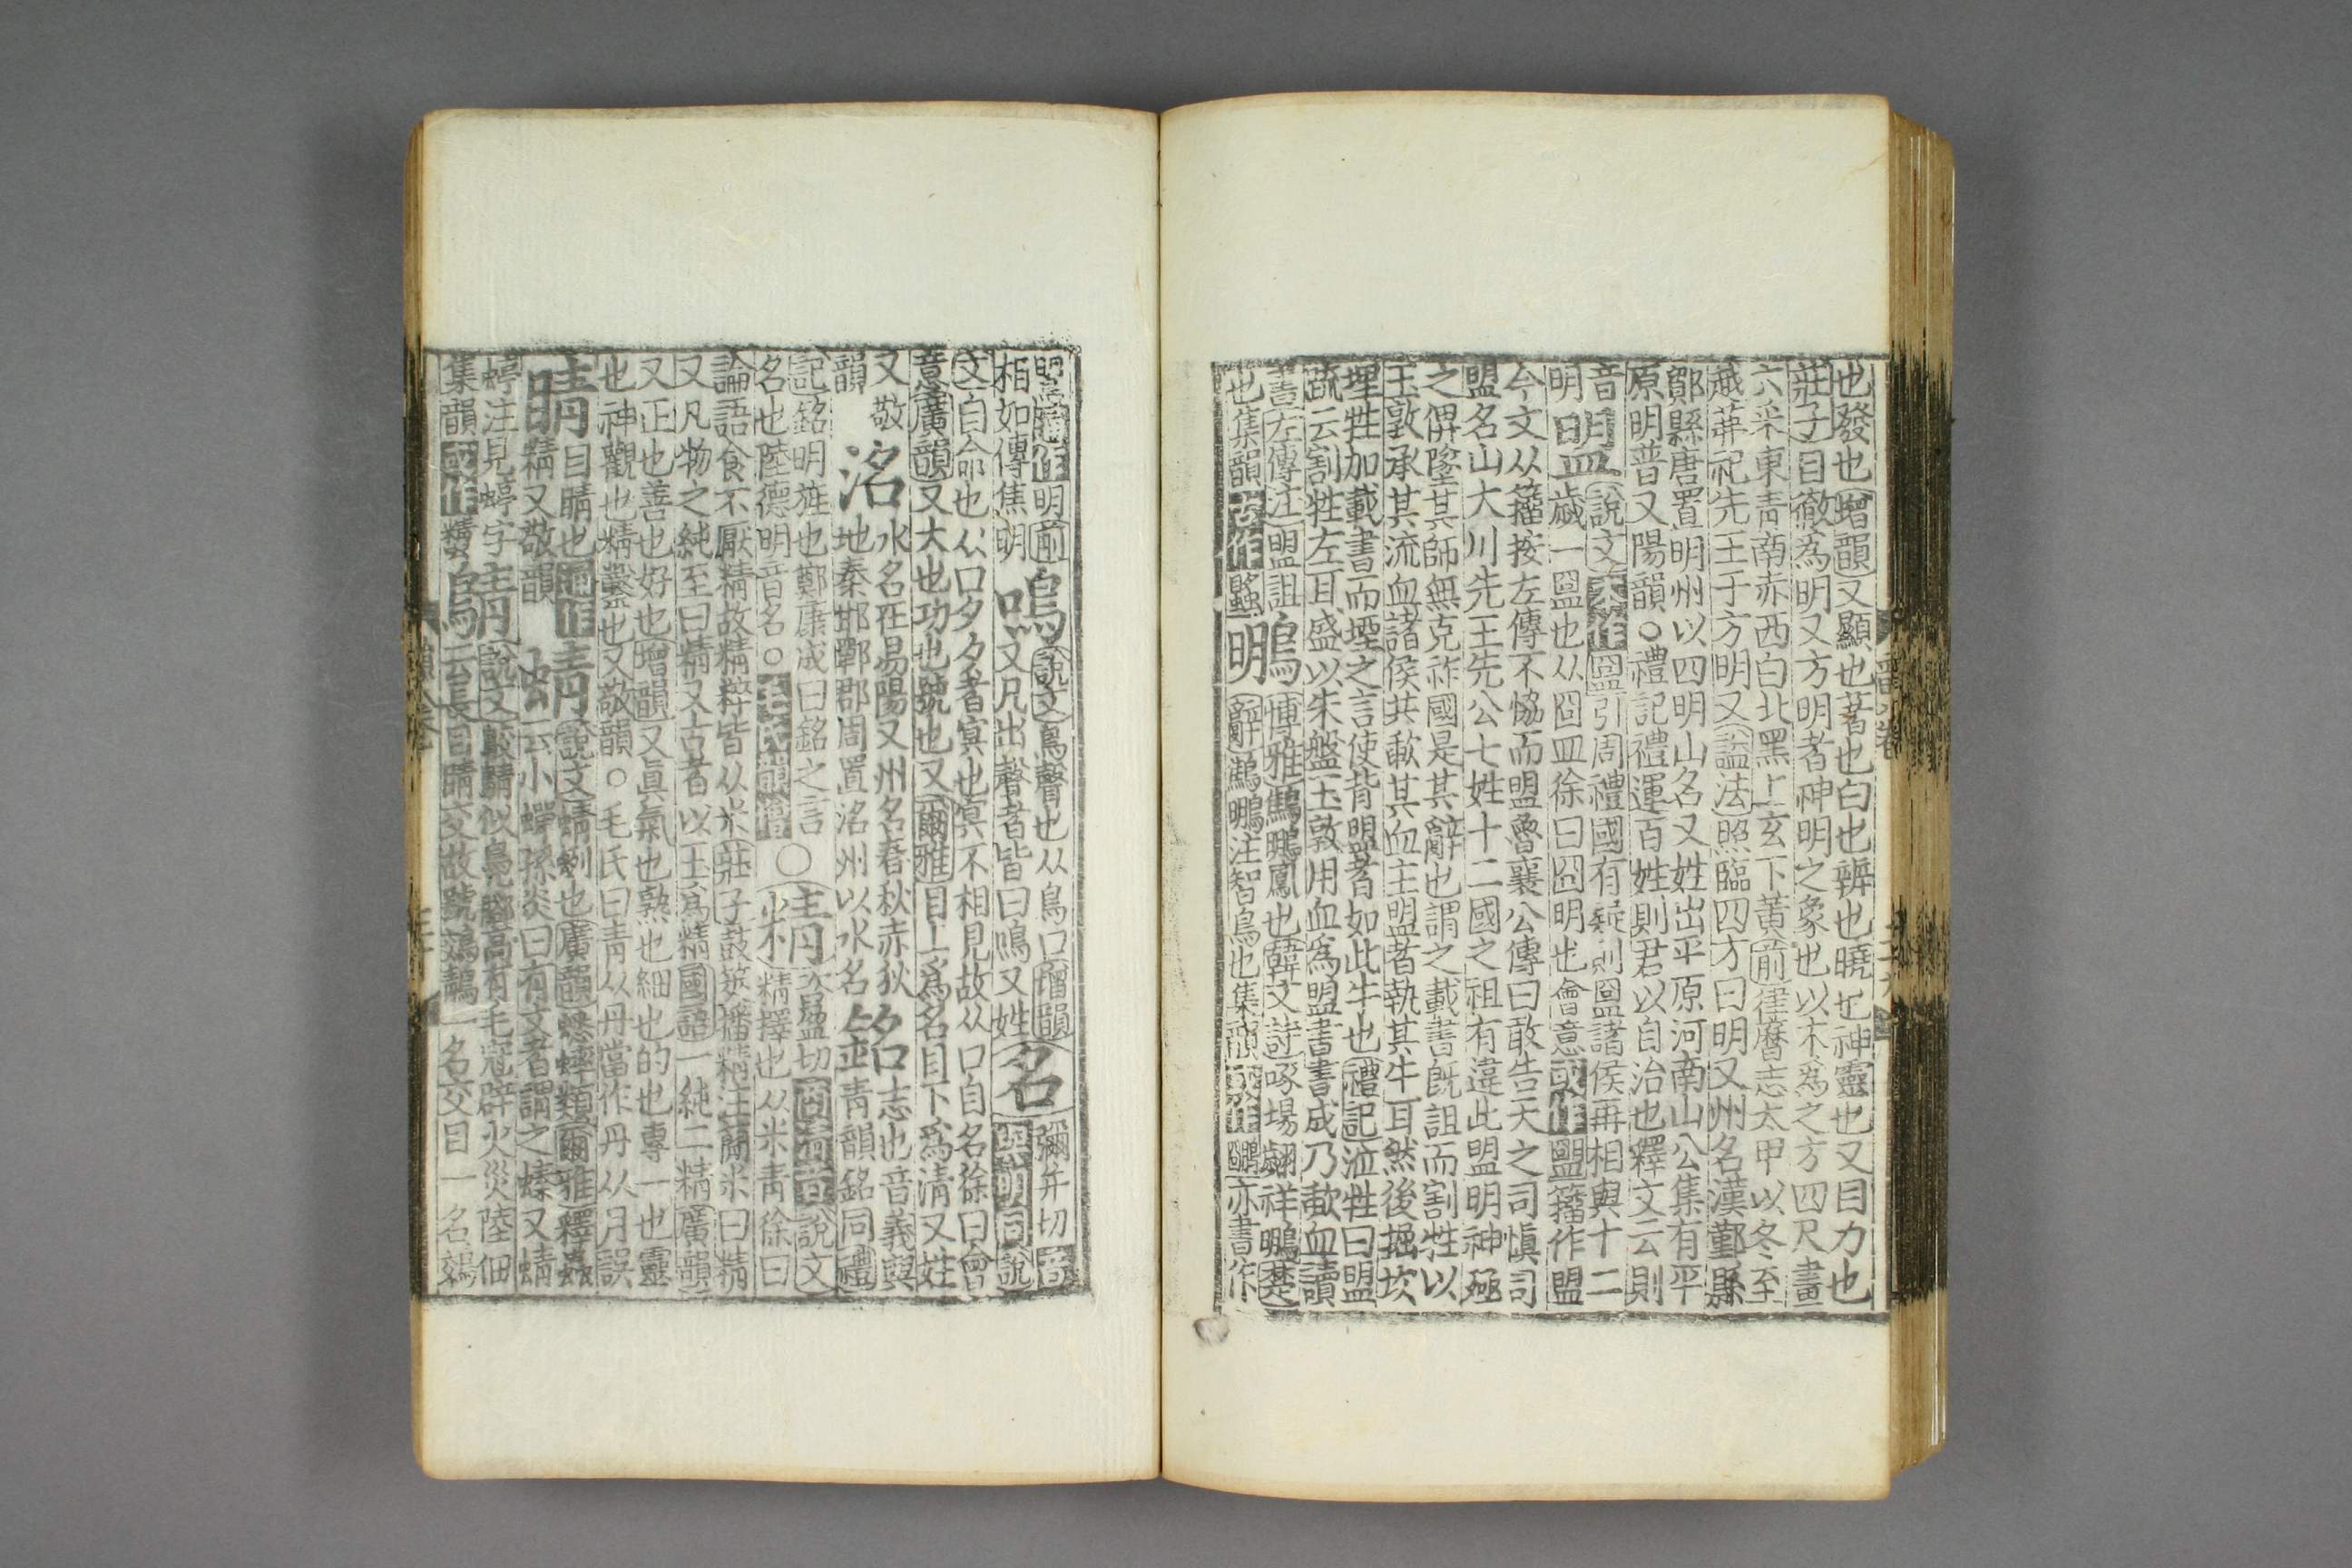 也發也增韻又顯也著也白也辨也曉也神靈也又目力也
莊子目徹爲明又方明者神明之象也以木爲之方四尺畫
六采東靑南赤西白北黑上玄下黃前律曆志太甲以冬至
越茀祀先王于方明又謚法照臨四方曰明又州名漢鄞縣
鄮縣唐置明州以四明山名又姓出平原河南山公集有平
原明普又陽韻○禮記禮運百姓則君以自治也釋文云則
音明
盟說文本作盟引周禮國有疑則盟諸侯再相與十二
歲一盟也从囧皿徐曰囧明也會意或作盟籀作盟
今文从籀按左傳不恊而盟魯襄公傳曰敢告天之司愼司
盟名山大川先王先公七姓十二國之祖有違此盟明神殛
之俾墜其師無克祚國是其辭也謂之載書旣詛而割牲以
玉敦承其流血諸侯共歃其血主盟者執其牛耳然後掘坎
埋牲加載書而堙之言使背盟者如此牛也禮記涖牲曰盟
疏云割牲左耳盛以朱盤玉敦用血爲盟書書成乃歃血讀
書左傳注盟詛
也集韻或作䳟
鴫博雅鷦䴌鳳也韓文詩啄場翽祥䴌楚
明辭鷦鵬注智鳥也集韻或作鵬亦書作
通作明前
相如傳焦明
鳴說文鳥聲也从鳥口增韻
又凡出聲者皆曰鳴又姓
名彌并切音
與前同說
文自命也从口夕夕者冥也冥不相見故从口自名徐曰會
意廣韻又大也功也號也又爾雅目上爲名目下爲淸又姓
又敬韻
洺水名在易陽又州名春秋赤狄
地秦邯鄲郡周置洺州以水名
銘志也音義與
靑韻銘同禮
記銘明旌也鄭康成曰銘之言
名也陸德明音名○毛氏韻增
○
精咨盈切商淸音說文
精擇也从米靑徐曰
論語食不厭精故精粹皆从米莊子鼓筴播精注簡米曰精
又凡物之純至曰精又古者以玉爲精國語一純二精廣韻
又正也善也好也增韻又眞氣也熟也細也的也專一也靈
也神觀也精鑿也又敬韻○毛氏曰靑从丹當作丹从月誤
睛目睛也通作
精又敬韻
蜻說文蜻蛚也廣韻蟋蟀類爾雅釋蟲
云小蟬孫炎曰有文者謂之螓又蜻
蝏注見蝏字
集韻或作䗲
鶄說文鵁鶄似鳧脚高有毛冠辟火災陸佃
云長目睛交故號鵁鶄一名交目一名鵁